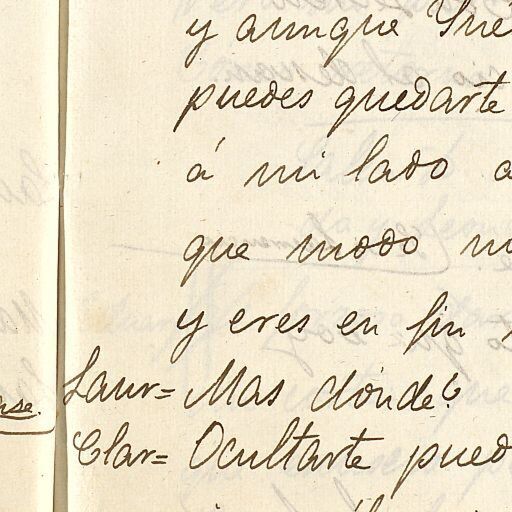 y aunque
puedes quedarte
á mi lado
que modo
y eres en fin
Laur= Mas dónde?
Clar= Ocultarte